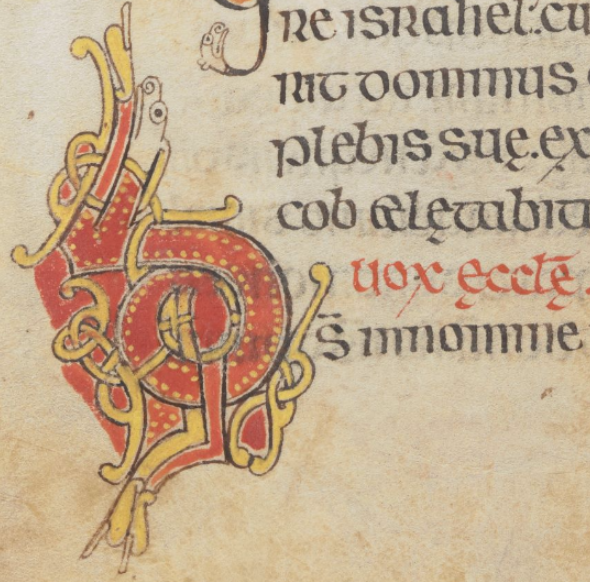 re israhel:cu
rit dominus
plebis suę.ex
cob & lętabit
uox ęcclē.
DS̄ innomine